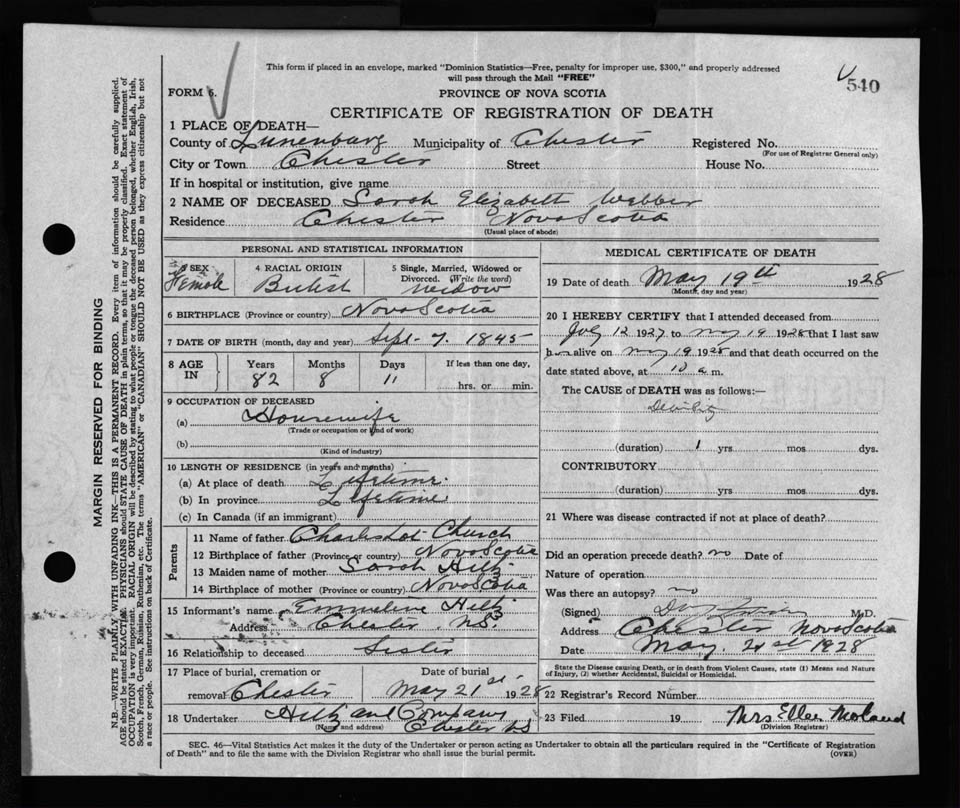 This form if placed in an envelope, marked "Dominion Statistics—Free, penalty for improper use, $300," and properly addressed
will pass through the Mail "FREE"
540
FORM 6.
PROVINCE OF NOVA SCOTIA
CERTIFICATE OF REGISTRATION OF DEATH
1 PLACE OF DEATH—
County of Lunenburg Municipality of Chester Registered No.
(For use of Registrar General only)
City or Town Chester Street House No.
If in hospital or institution, give name
2 NAME OF DECEASED Sarah Elizabeth Webber
Residence Chester Nova Scotia
(Usual place of abode)
PERSONAL AND STATISTICAL INFORMATION
3 SEX Female
4 RACIAL ORIGIN British
5 Single, Married, Widowed or Divorced. (Write the word) Widow
6 BIRTHPLACE (Province or country) Nova Scotia
7 DATE OF BIRTH (month, day and year) Sept. 7. 1845
8 AGE IN Years 82 Months 8 Days 11 If less than one day, hrs. or min.
9 OCCUPATION OF DECEASED
(a) Housewife
(Trade or occupation or kind of work)
(b)
(Kind of industry)
10 LENGTH OF RESIDENCE (in years and months)
(a) At place of death Lifetime
(b) In province Lifetime
(c) In Canada (if an immigrant)
Parents
11 Name of father Charles Lot Church
12 Birthplace of father (Province or country) Nova Scotia
13 Maiden name of mother Sarah Hiltz
14 Birthplace of mother (Province or country) Nova Scotia
15 Informant's name Emmeline Hiltz
Address Chester N.S.
16 Relationship to deceased Sister
17 Place of burial, cremation or removal Chester
Date of burial May 21st 1928
18 Undertaker Hiltz and Company
(Name and address) Chester NS
MEDICAL CERTIFICATE OF DEATH
19 Date of death May 19th 1928
(Month, day and year)
20 I HEREBY CERTIFY that I attended deceased from
July 12 1927 to May 19 1928 that I last saw
her alive on May 19 1928 and that death occurred on the
date stated above, at 10 a.m.
The CAUSE of DEATH was as follows:—
Debility
(duration) 1 yrs mos dys.
CONTRIBUTORY
(duration) yrs. mos. dys.
21 Where was disease contracted if not at place of death?
Did an operation precede death? no Date of
Nature of operation
Was there an autopsy? no
(Signed) M.D.
Address Chester Nova Scotia
Date May. 21st 1928
State the Disease causing Death, or in death from Violent Causes, state (1) Means and Nature
of Injury, (2) whether Accidental, Suicidal or Homicidal.
22 Registrar's Record Number
23 Filed 19 Mrs Ellen
(Division Registrar)
SEC. 46—Vital Statistics Act makes it the duty of the Undertaker or person acting as Undertaker to obtain all the particulars required in the "Certificate of Registration
of Death" and to file the same with the Division Registrar who shall issue the burial permit. (OVER)
MARGIN RESERVED FOR BINDING
N.B.—WRITE PLAINLY, WITH UNFADING INK—THIS IS A PERMANENT RECORD. Every item of information should be carefully supplied.
AGE should be stated EXACTLY. PHYSICIANS should STATE CAUSE OF DEATH in plain terms, so that it may be properly classified. Exact statement of
OCCUPATION is very important. RACIAL ORIGIN will be described by stating to what people or tongue the deceased person belonged, whether English, Irish,
Scotch, French, German, Russian, Ruthenian, etc. The terms "AMERICAN" or "CANADIAN" SHOULD NOT BE USED as they express citizenship but not
a race or people. See instructions on back of Certificate.